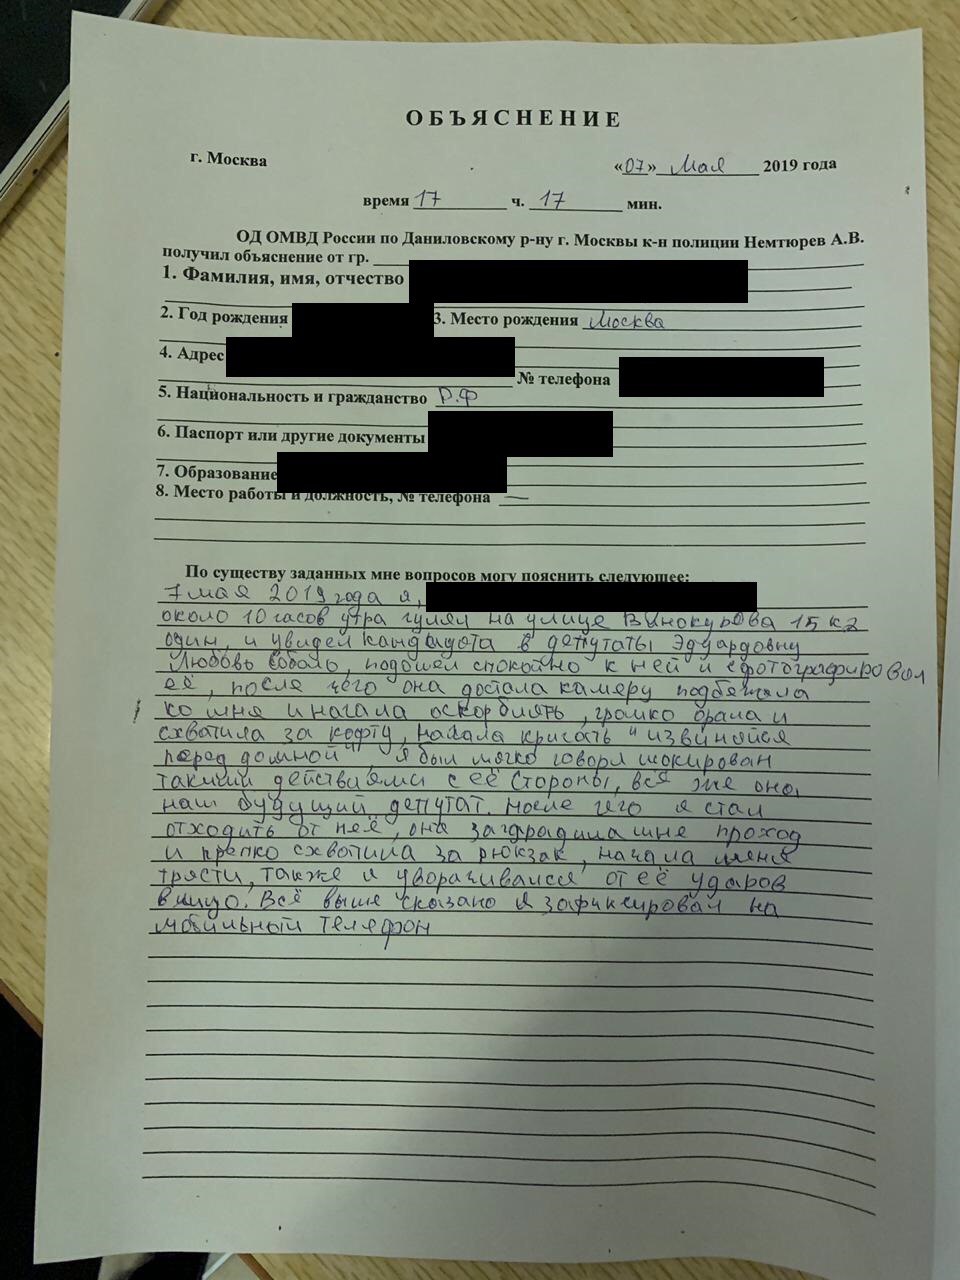 ОБЪЯСНЕНИЕ
г. Москва «07» Мая 2019 года
время 17 ч. 17 мин.
ОД ОМВД России по Даниловскому р-ну г. Москвы к-н полиции Немтюрев А.В.
получил объяснение от гр.
1. Фамилия, имя, отчество
2. Год рождения 3. Место рождения Москва
4. Адрес
№ телефона
5. Национальность и гражданство Р.Ф
6. Паспорт или другие документы
7. Образование
8. Место работы и должность, № телефона —
По существу заданных мне вопросов могу пояснить следующее:
7 мая 2019 года я,
около 10 часов утра гулял на улице Винокурова 15 к2
один, и увидел кандидата в депутаты Эдуардовну
Любовь Соболь, подошел спокойно к ней и сфотографировал
её, после чего она достала камеру подбежала
ко мне и начала оскорблять, громко орала и
схватила за кофту, начала кричать "извиняйся
перед домной", я был мягко говоря шокирован
такими действиями с её Стороны, всё же она,
наш будущий депутат. После чего я стал
отходить от неё, она загрaдила мне проход
и крепко схватила за рюкзак, начала меня
трясти, также я уворачивался от её ударов
в лицо. Всё выше сказано я зафиксировал на
мобильный телефон